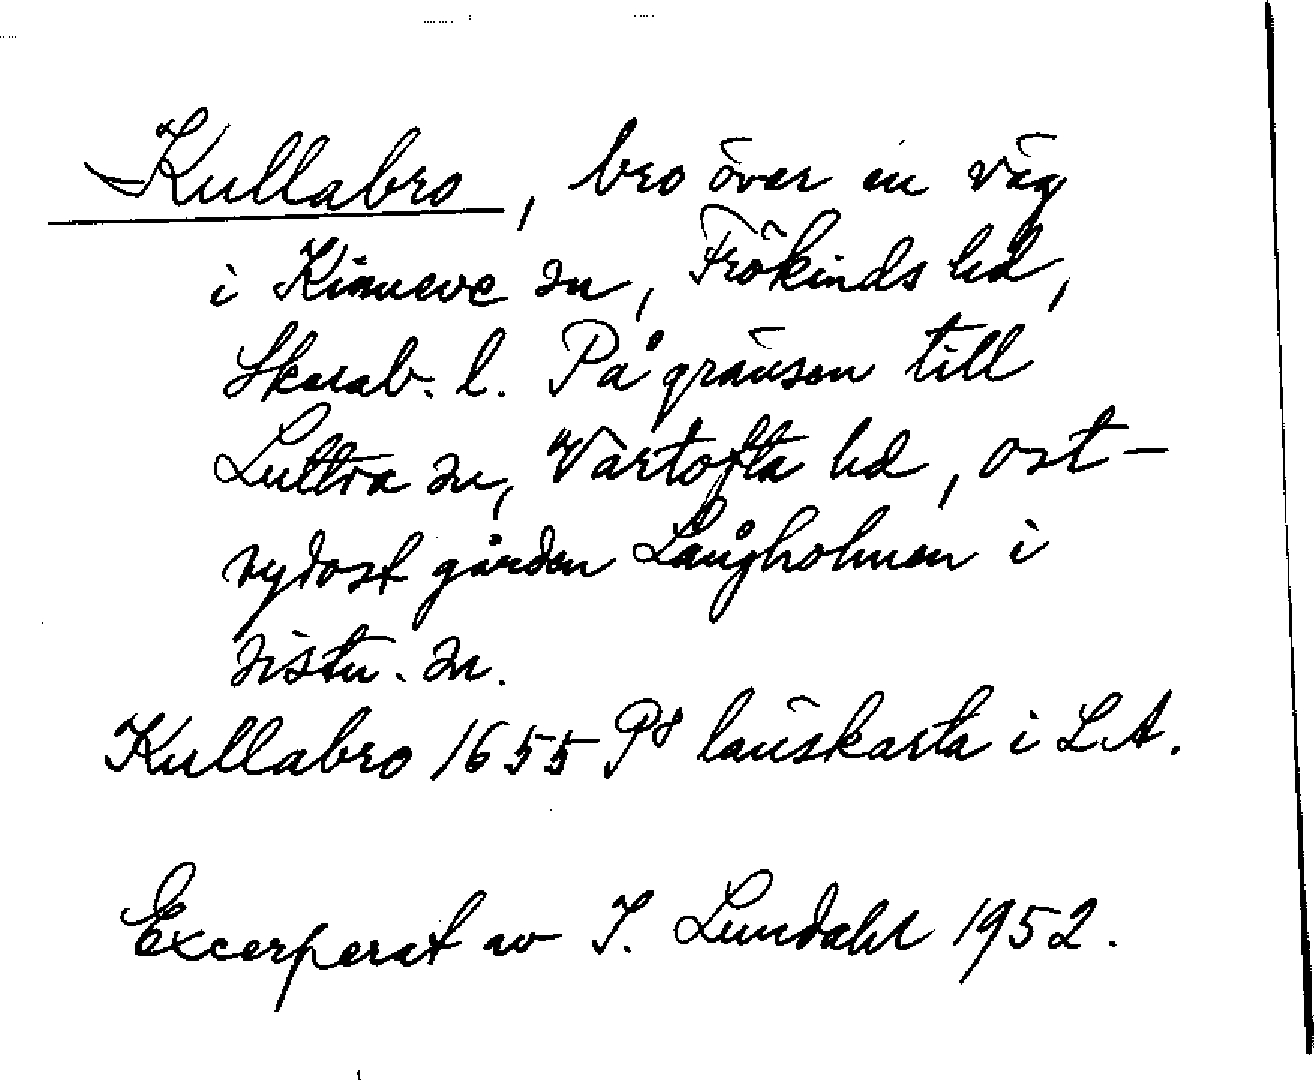 Kullabro, bro över en väg
i Kinneve sn, Frökinds hd,
Skarab. l. På gränsen till
Luttra sn, Vartofta hd, ost-
sydost gården Långholmen i
sistn. sn.
Kullabro 1655 P8 länskarta i LA.
Excerperat av I. Lundahl 1952.